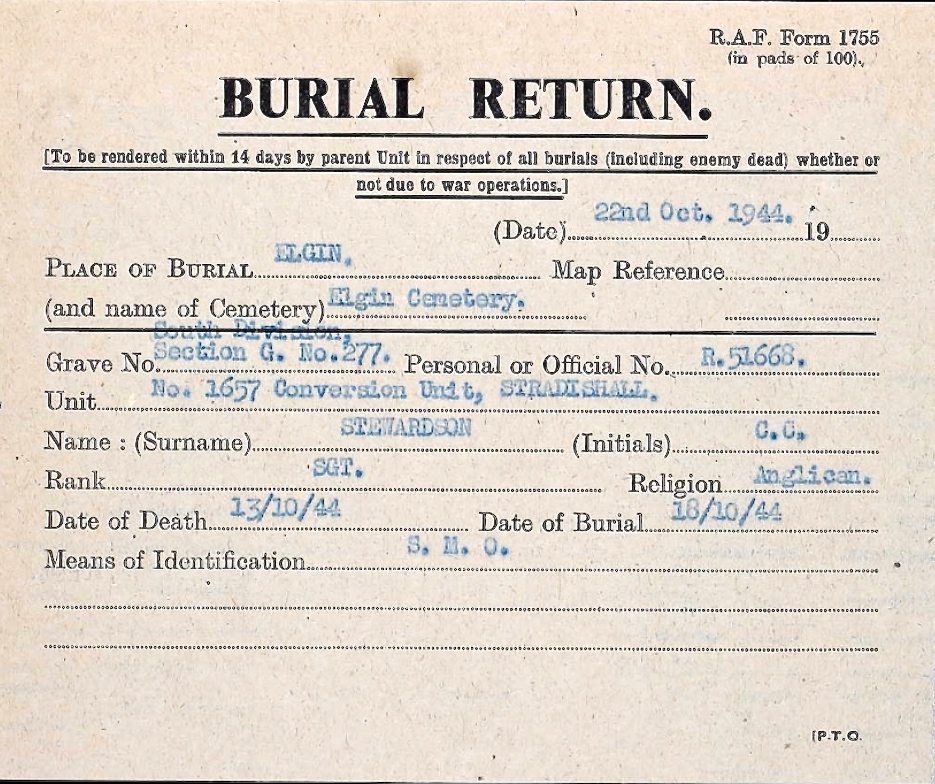 R.A.F. Form 1755
(in pads of 100).
BURIAL RETURN.
[To be rendered within 14 days by parent Unit in respect of all burials (including enemy dead) whether or
not due to war operations.]
(Date) 22nd Oct. 1944. 19
PLACE OF BURIAL ELGIN. Map Reference
(and name of Cemetery) Elgin Cemetery.
South Division,
Grave No. Section G. No.277. Personal or Official No. R.51668.
Unit No. 1657 Conversion Unit, STRADISHALL.
Name : (Surname) STEWARDSON (Initials) C.C.
Rank SGT. Religion Anglican.
Date of Death 13/10/44 Date of Burial 18/10/44
Means of Identification S. M. O.
[P.T.O.